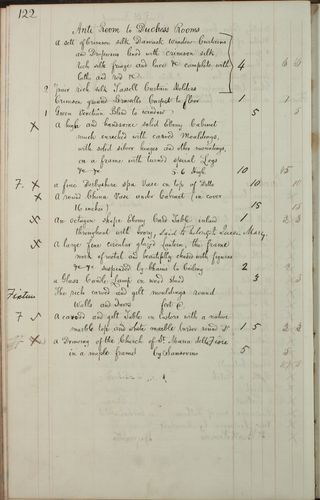 122
Ante Room to Duchess Rooms
A sett of Crimson Silk Damask Window Curtains
and Draperies lined with crimson silk,
rich silk fringe and lace &c complete with
laths and rod &c. 4
2 pair rich silk Tassell Curtain Holders
Crimson ground Brussells Carpet to floor 1 1
1 Green Venetian Blind to window 5 5
X A large and handsome solid Ebony Cabinet
much enriched with carved Mouldings,
with solid silver hinges and other mountings,
on a frame with turned spiral Legs
&c &c 5 . 6 high 10 15
7. X a fine Derbyshire Spa Vase on top of Ditto 10 10
X A round China Vase under Cabinet (in cover
16 inches) 15 15
X An octagon shape Ebony Card Table inlaid 1
throughout with Ivory, said to belong to Queen Mary.
X A large fine circular glazed Lantern, the frame
work of metal and beautifully chased with figures
&c &c suspended by chains to Ceiling 2
a Glass Candle Lamp on wood stand 3 3
Fixture The rich carved and gilt mouldings round
Walls and Doors feet 6.
7 A carved and gilt Table in lustre with a nature
marble top and white marble border round it 1 5
X a Drawing of the Church of St. Maria della Fiore
in a maple frame by Sansovino 5 5